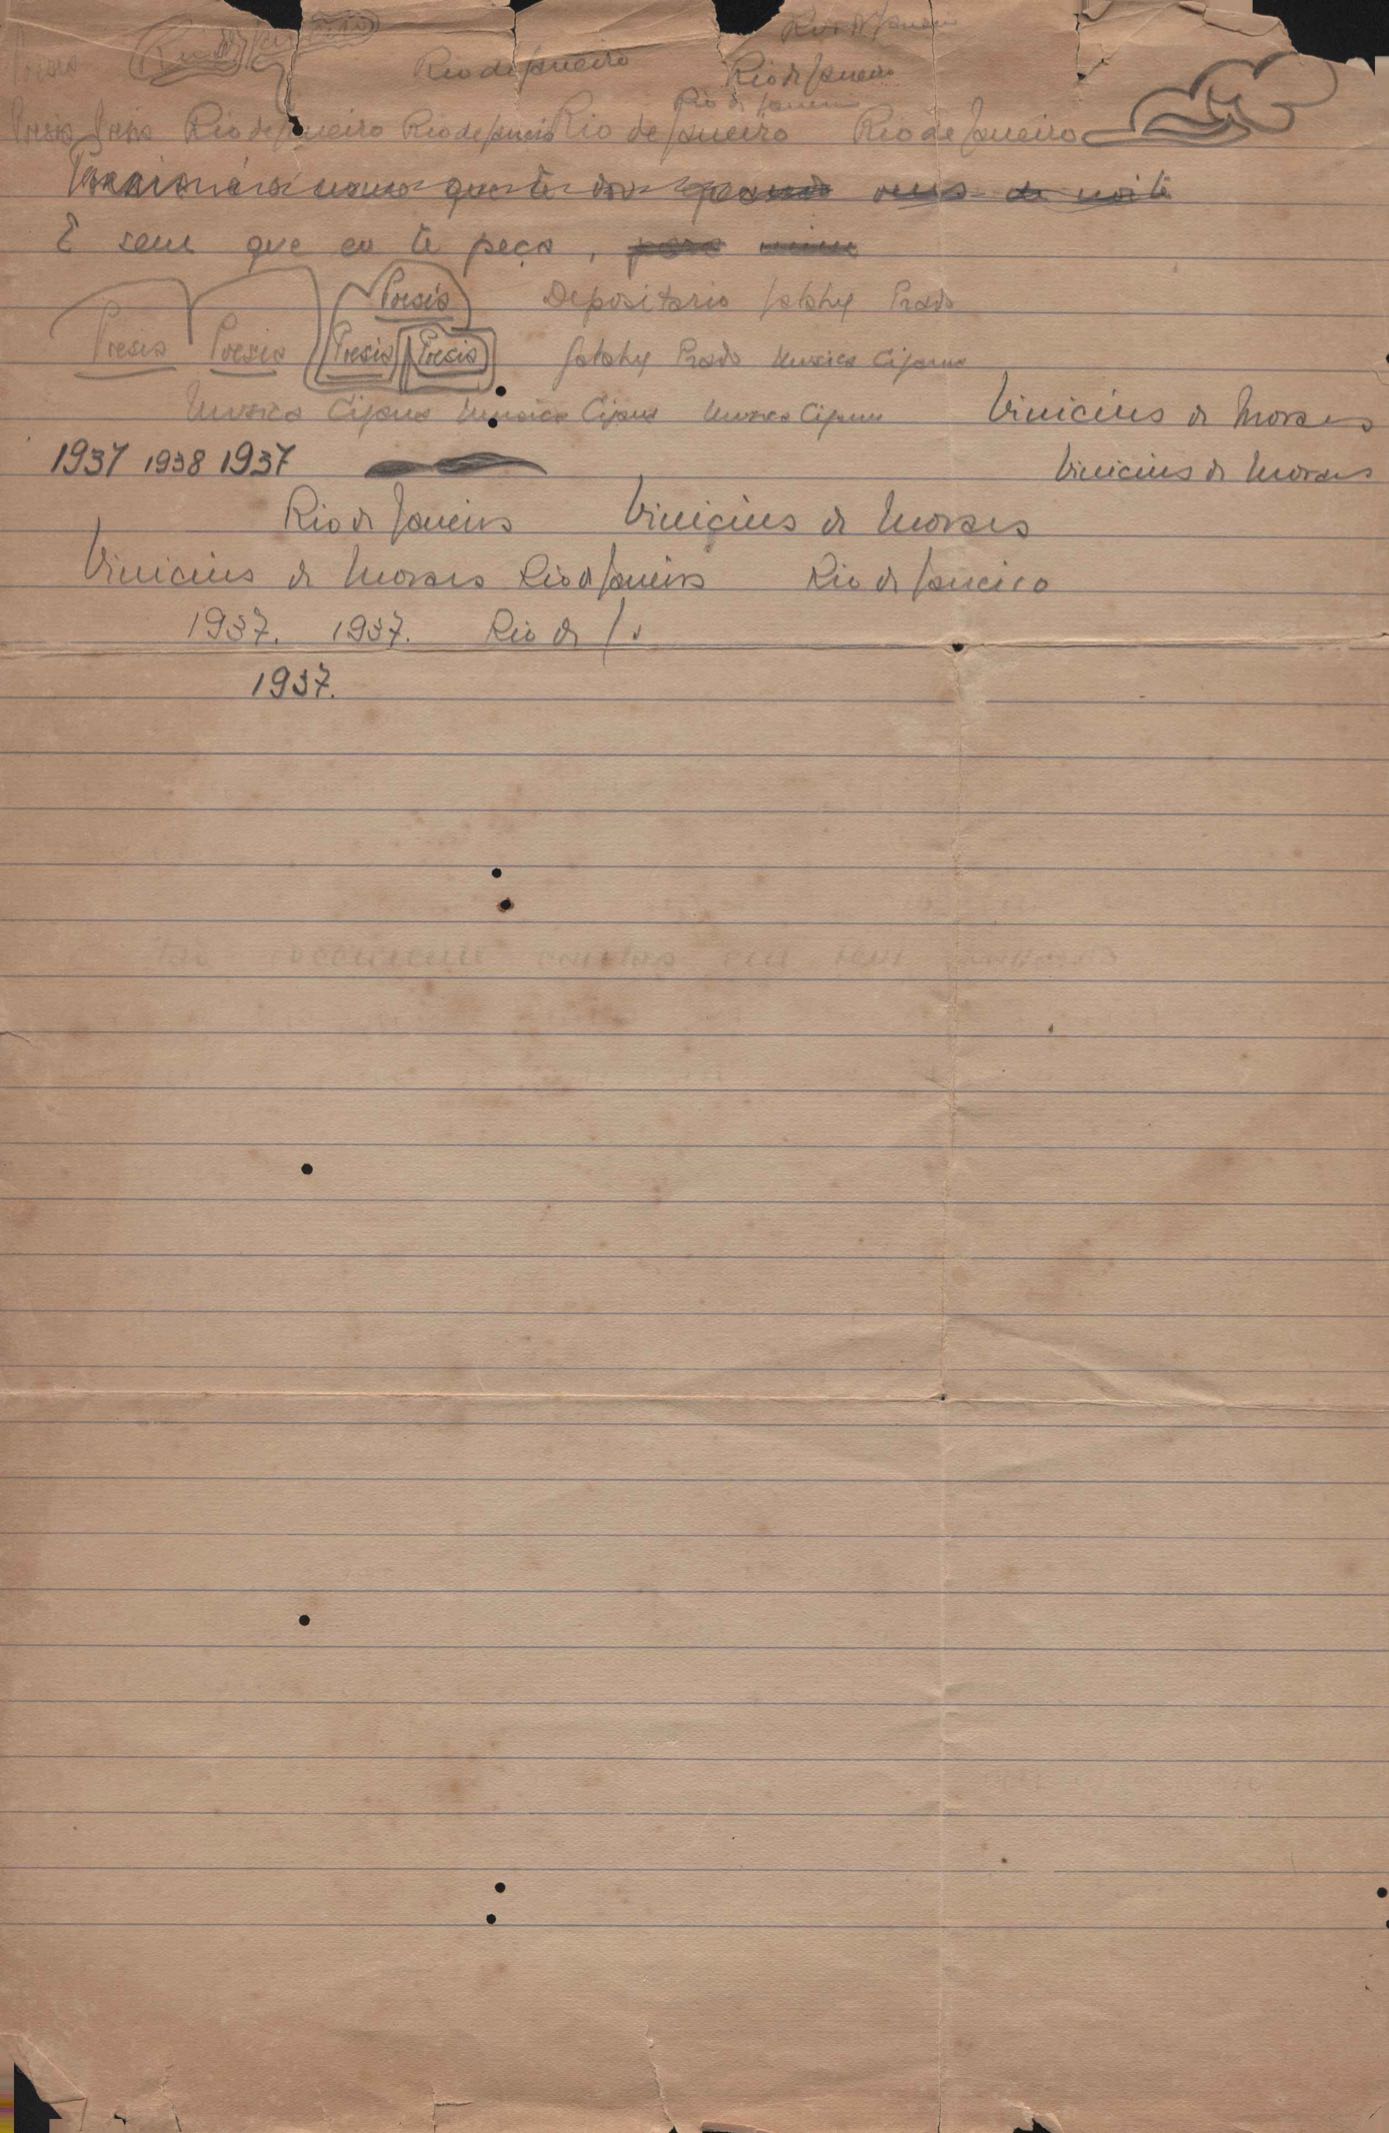 Rio de Janeiro
Poesia Rio de Janeiro Rio de Janeiro Rio de Janeiro
Rio de Janeiro
Poesia Poesia Rio de Janeiro Rio de Janeiro Rio de Janeiro Rio de Janeiro
que te dou quando vens de noite
E sem que eu te peça, para mim
Poesia Depositario Jatahy Prado
Poesia Poesia Poesia Poesia Jatahy Prado Musica Cigana
Musica Cigana Musica Cigana Musica Cigana Vinicius de Moraes
1937 1938 1937 Vinicius de Moraes
Rio de Janeiro Vinicius de Moraes
Vinicius de Moraes Rio de Janeiro Rio de Janeiro
1937. 1937. Rio de J.
1937.